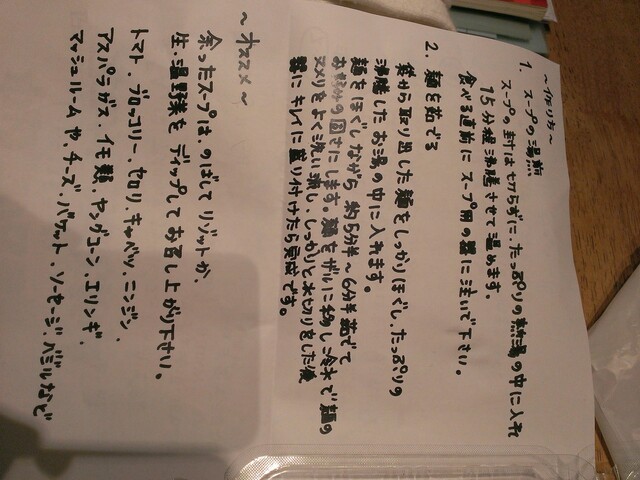 〜作り方〜
1. スープの湯煎
スープの封は切らずに、たっぷりの熱湯の中に入れ
15分程沸騰させて温めます。
食べる直前にスープ用の器に注いで下さい。
2. 麺を茹でる
袋から取り出した麺をしっかりほぐし、たっぷりの
沸騰したお湯の中に入れます。
麺をほぐしながら約5分半〜6分半茹でて
お好みの固さにします。麺をザルに移し冷水で麺の
ヌメリをよく洗い流し、しっかりと水切りをした後
器にキレイに盛り付けたら完成です。
〜オススメ〜
余ったスープは、のばしてリゾットか、
生・温野菜をディップしてお召し上がり下さい。
トマト、ブロッコリー、セロリ、キャベツ、ニンジン、
アスパラガス、イモ類、ヤングコーン、エリンギ、
マッシュルームや、チーズ、バケット、ソーセージ、バジルなど